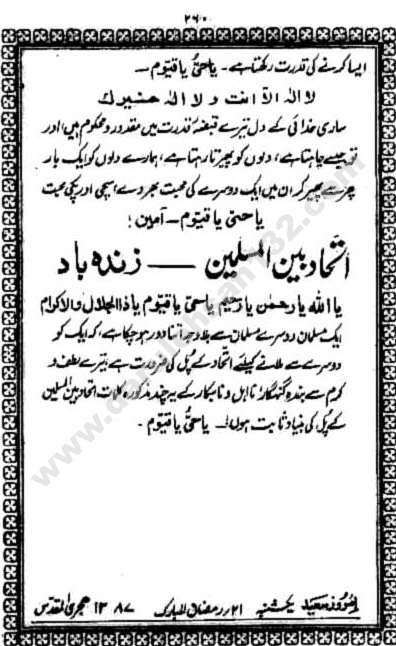 ۲۶۰
ایسا کرنے کی قدرت رکھتا ہے۔ یا حیُّ یا قیّوم —
لا الہ الا انت ولا الہ غیرک
ساری خدائی کے دل تیرے قبضۂ قدرت میں مقدور و محکوم ہیں اور
تو جیسے چاہتا ہے، دلوں کو پھیرتا رہتا ہے، ہمارے دلوں کو ایک بار
پھر سے پھیر کر ان میں ایک دوسرے کی محبت بھر دے اچھی اور پکی محبت
یا حیُّ یا قیّوم — آمین!
اتحاد بین المسلمین — زندہ باد
یا اللہ یا رحمٰن یا رحیم یا حیُّ یا قیّوم یا ذا الجلال والاکرام
ایک مسلمان دوسرے مسلمان سے بلا وجہ اتنا دور ہو چکا ہے، کہ ایک کو
دوسرے سے ملانے کیلئے اتحاد کے پُل کی ضرورت ہے تیرے لطف و
کرم سے بندہ گنہگار نا اہل و نابکار کے یہ چند مذکورہ کلمات اتحاد بین المسلمین
کے پُل کی بنیاد ثابت ہوں! — یا حیُّ یا قیّوم ۔
امروز سعید یکشنبہ ۲۱ رمضان المبارک ۱۳۸۷ ہجری المقدس